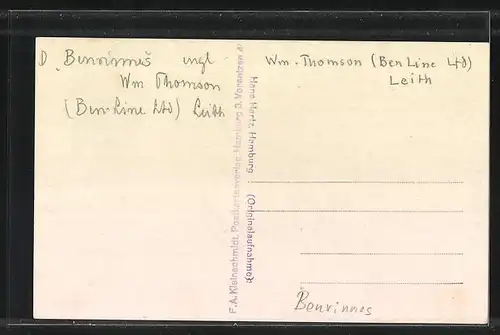 D „Benrinnes" engl.
Wm Thomson
(Ben-Line Ltd) Leith
Wm. Thomson (Ben Line Ltd)
Leith
F. A. Kleinschmidt, Postkartenverlag, Hamburg 3, Vorsetzen
Hans Hartz, Hamburg (Originalaufnahme)
Benrinnes